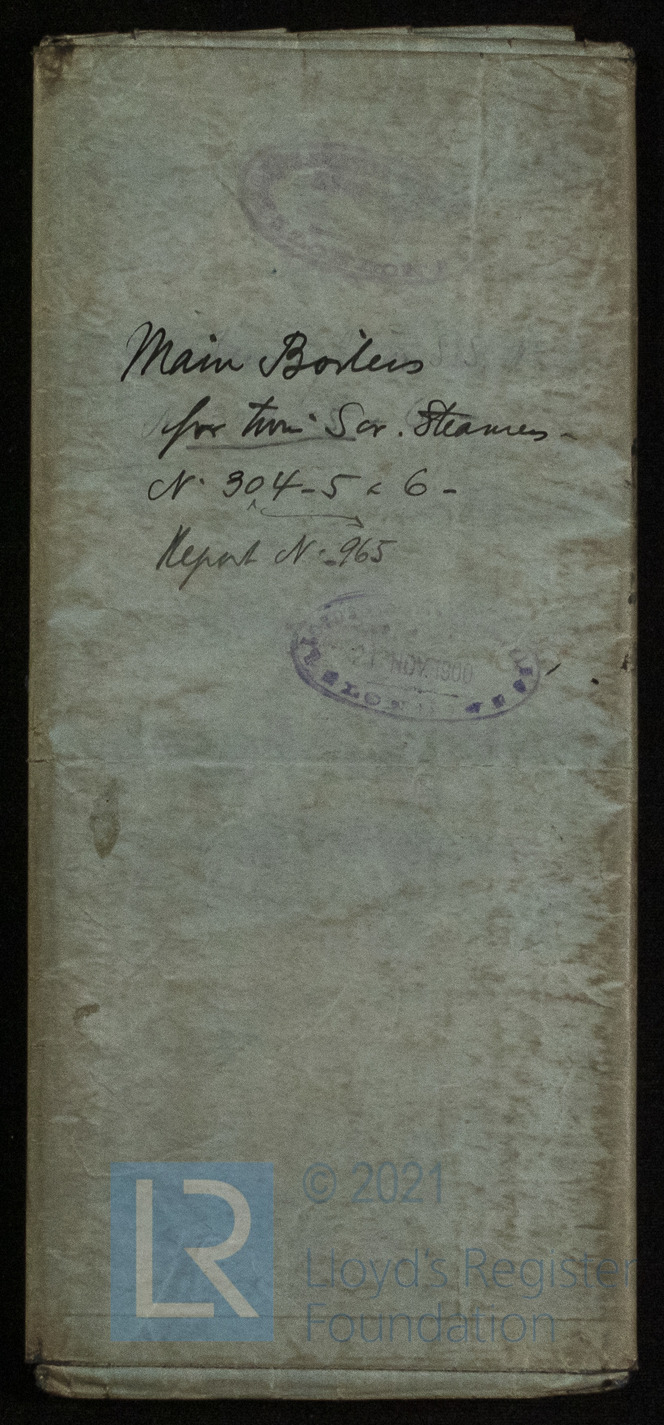 Main Boilers
for twin Scr. Steamers
No. 304-5 & 6 -
Report No. 965
LR
© 2021
Lloyd's Register
Foundation